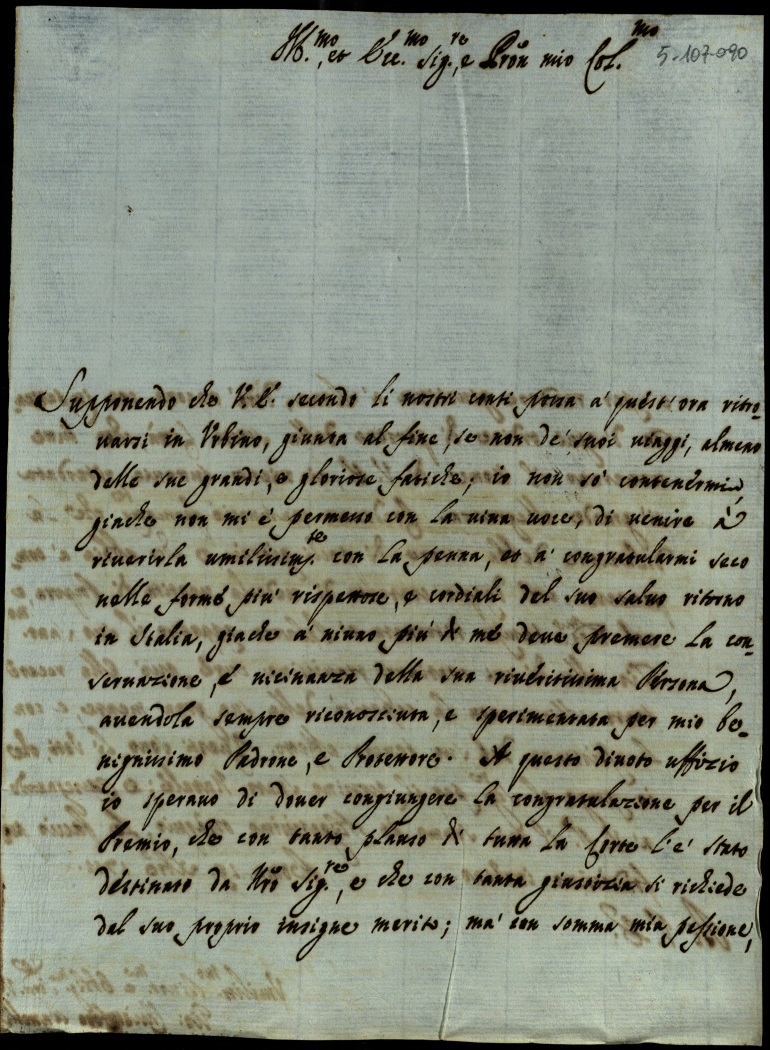 Ill.mo, et Ecc.mo Sig.re, e Pron mio Col.mo
5-107-090
Supponendo che V. E. secondo li nostri conti possa a' quest'ora ritro-
uarsi in Vrbino, giunta al fine, se non de' suoi uiaggi, almeno
delle sue grandi, e gloriose fatiche; io non so' contenermi,
giache non mi è permesso con la uiua uoce, di uenire à
riuerirla umilissim.te con la penna, et a' congratularmi seco
nelle forme piu' rispettose, e cordiali del suo saluo ritorno
in Italia, giache a' niuno piu' di me deue premere la con-
seruazione, e' uicinanza della sua riueritissima Persona,
auendola sempre riconosciuta, e sperimentata per mio be-
nignissimo Padrone, e Protettore. A questo diuoto uffizio
io sperauo di douer congiungere la congratulazione per il
Premio, che con tanto plauso di tutta la Corte l'e' stato
destinato da Nro Sig.re, e che con tanta giustizia si richiede
dal suo proprio insigne merito; ma' con somma mia passione,